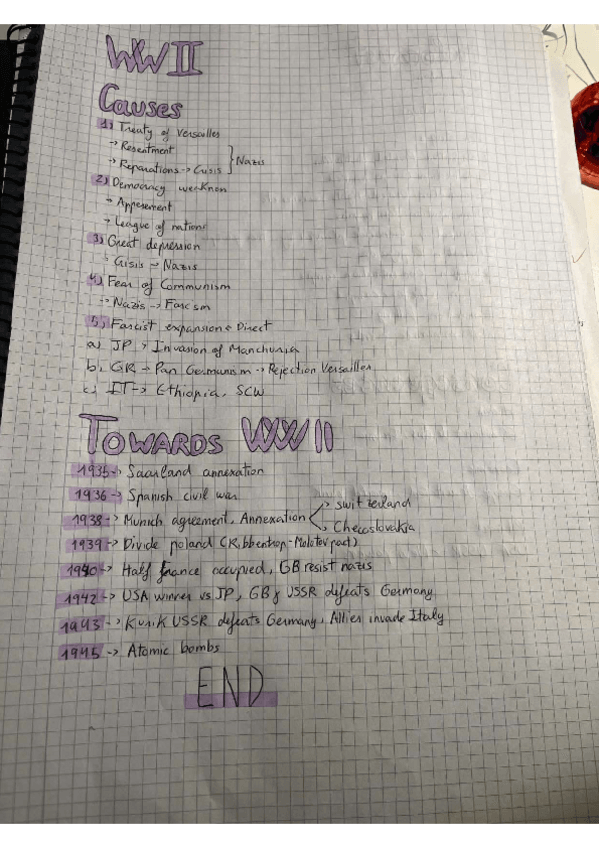 WW II
Causes
1) Treaty of Versailles
→ Resentment
→ Reparations → Crisis } Nazis
2) Democracy weaknen
→ Appesement
→ League of nations
3) Great depression
Crisis → Nazis
4) Fear of Communism
→ Nazis → Fascism
5) Fascist expansions Direct
a) JP → Invasion of Manchuria
b) GR → Pan Germanism → Rejection Versailles
c) IT → Ethiopia, SCW
TOWARDS WW II
1935 → Saarland annexation
1936 → Spanish civil war
→ Switzerland
1938 → Munich agreement, Annexation
→ Checoslovakia
1939 → Divide poland (Ribbentrop-Molotev pact)
1940 → Half france occupied, GB resist nazis
1942 → USA winner vs JP, GB y USSR defeats Germany
1943 → Kursk USSR defeats Germany, Allies invade Italy
1945 → Atomic bombs
END